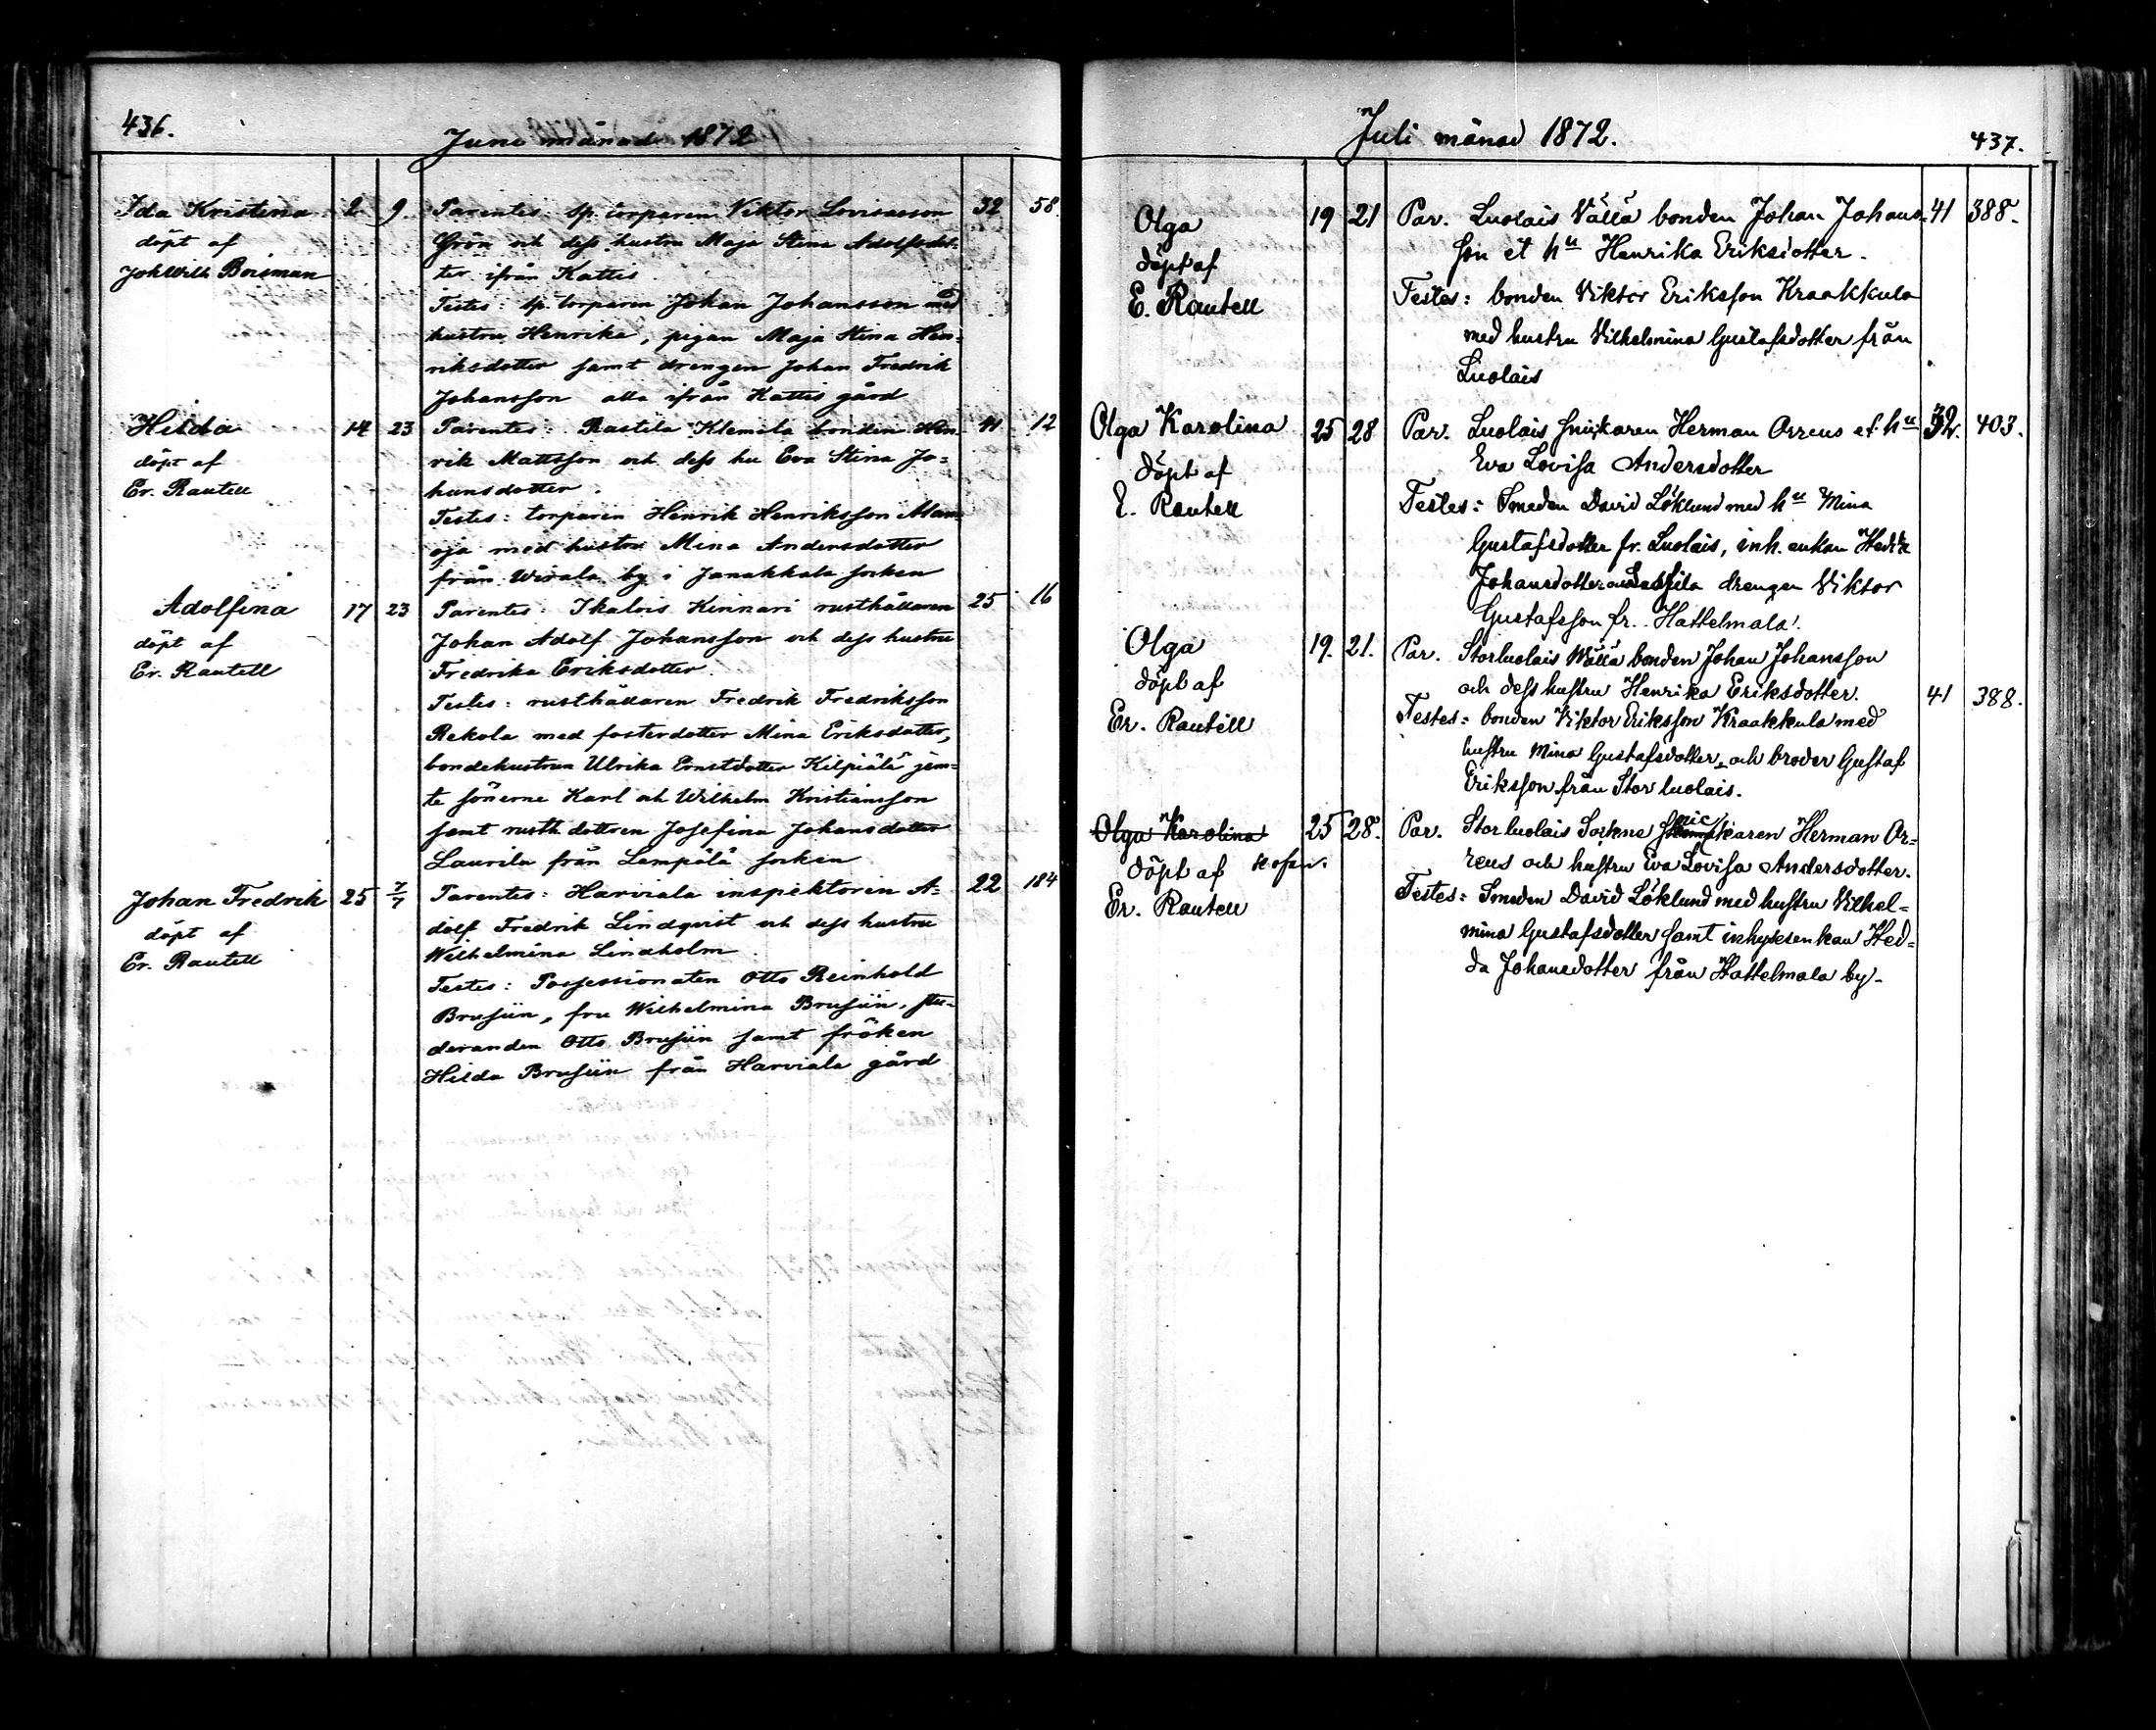 436.
Juni månad 1872
Ida Kristina 2 9. Parentes: sp. torparen Viktor Lovisasson 32 58.
döpt af Grön och dess hustru Maja Stina Adolfsdot-
Joh Wilh Boisman ter ifrån Kattis.
Testes: sp. torparen Johan Johansson med
hustru Henrika, pigan Maja Stina Hen-
riksdotter samt drengen Johan Fredrik
Johansson alla ifrån Kattis gård
Hilda 14 23 Parentes: Rastila Klemela bonden Hen- 41 12
döpt af rik Mattsson och dess hu Eva Stina Jo-
Er. Rautell hansdotter.
Testes: torparen Henrik Henriksson
oja med hustru Mina Andersdotter
från Wirala by i Janakkala socken
Adolfina 17 23 Parentes: Ikalois Kinnari rusthållaren 25 16
döpt af Johan Adolf Johansson och dess hustru
Er. Rautell Fredrika Eriksdotter.
Testes: rusthållaren Fredrik Fredriksson
Rekola med fosterdotter Mina Eriksdotter,
bondehustrun Ulrika Ernstdotter Kilpiälä jem-
te sönerne Karl och Wilhelm Kristiansson
samt rusth. dottren Josefina Johansdotter
Laurila från Lempälä socken
Johan Fredrik 25 7/7 Parentes: Harviala inspektoren A- 22 184
döpt af dolf Fredrik Lindqvist och dess hustru
Er. Rautell Wilhelmina Lindholm.
Testes: Possessionaten Otto Reinhold
Brusiin, fru Wilhelmina Brusiin, stu-
deranden Otto Brusiin samt fröken
Hilda Brusiin från Harviala gård
Juli månad 1872.
437.
Olga 19 21 Par. Luolais Wällä bonden Johan Johans- 41 388.
döpt af son et hu Henrika Eriksdotter.
E. Rautell Testes: bonden Viktor Eriksson Kraakkula
med hustru Vilhelmina Gustafsdotter från
Luolais
Olga Karolina 25 28 Par. Luolais snickaren Herman Orreus et hu 32. 403.
döpt af Eva Lovisa Andersdotter
E. Rautell Testes: Smeden David Löklund med hu Mina
Gustafsdotter fr. Luolais, inh. enkan Hedda
Johansdotter drengen Viktor
Gustafsson fr. Hattelmala.
Olga 19. 21. Par. Storluolais Wällä bonden Johan Johansson
döpt af och dess hustru Henrika Eriksdotter. 41 388.
Er. Rautell Testes: bonden Viktor Eriksson Kraakkula med
hustru Mina Gustafsdotter, och broder Gustaf
Eriksson från Stor luolais.
Olga Karolina 25 28. Par. Storluolais Sockne snickaren Herman Or-
döpt af reus och hustru Eva Lovisa Andersdotter.
Er. Rautell Testes: Smeden David Löklund med hustru Vilhel-
mina Gustafsdotter samt inhysesenkan Hed-
da Johansdotter från Hattelmala by.